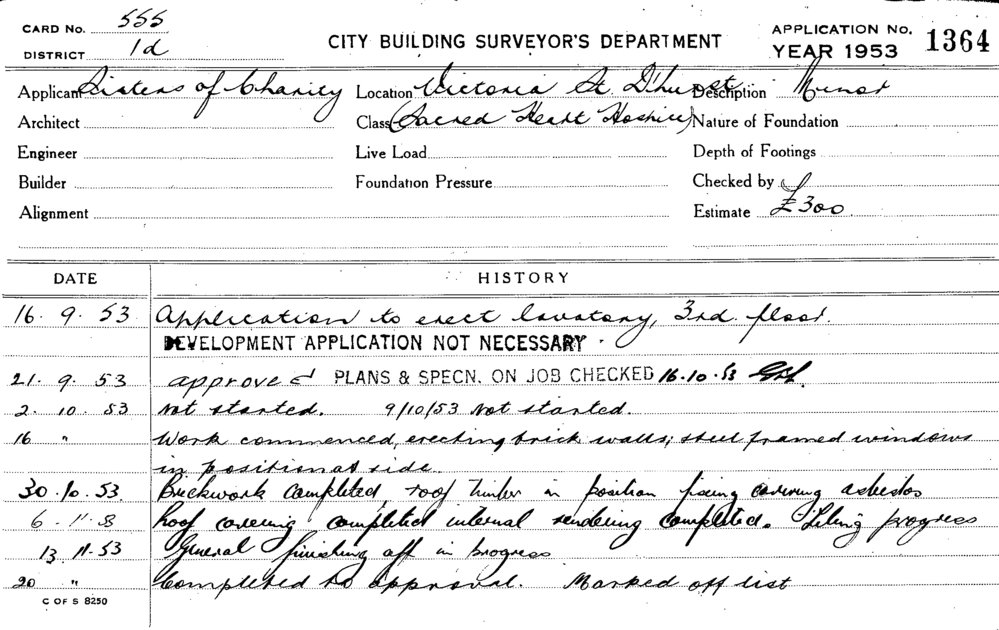 CARD No. 555
DISTRICT 1d
CITY BUILDING SURVEYOR'S DEPARTMENT
APPLICATION No. 1364
YEAR 1953
Applicant Sisters of Charity Location Victoria St. D'hurst Description Minor
Architect Class (Sacred Heart Hospice) Nature of Foundation
Engineer Live Load Depth of Footings
Builder Foundation Pressure Checked by
Alignment Estimate £300
DATE HISTORY
16. 9. 53 Application to erect lavatory, 3rd. floor.
DEVELOPMENT APPLICATION NOT NECESSARY
21. 9. 53 approved PLANS & SPECN. ON JOB CHECKED 16.10.53
2. 10. 53 Not started. 9/10/53 Not started.
16 " Work commenced, erecting brick walls; steel framed windows
in position at side.
30.10.53 Brickwork completed, roof timber in position fixing covering asbestos
6.11.53 Roof covering completed internal rendering completed. Tiling progress
13 11.53 General finishing off in progress
20 " Completed to approval. Marked off list
C OF S 8250